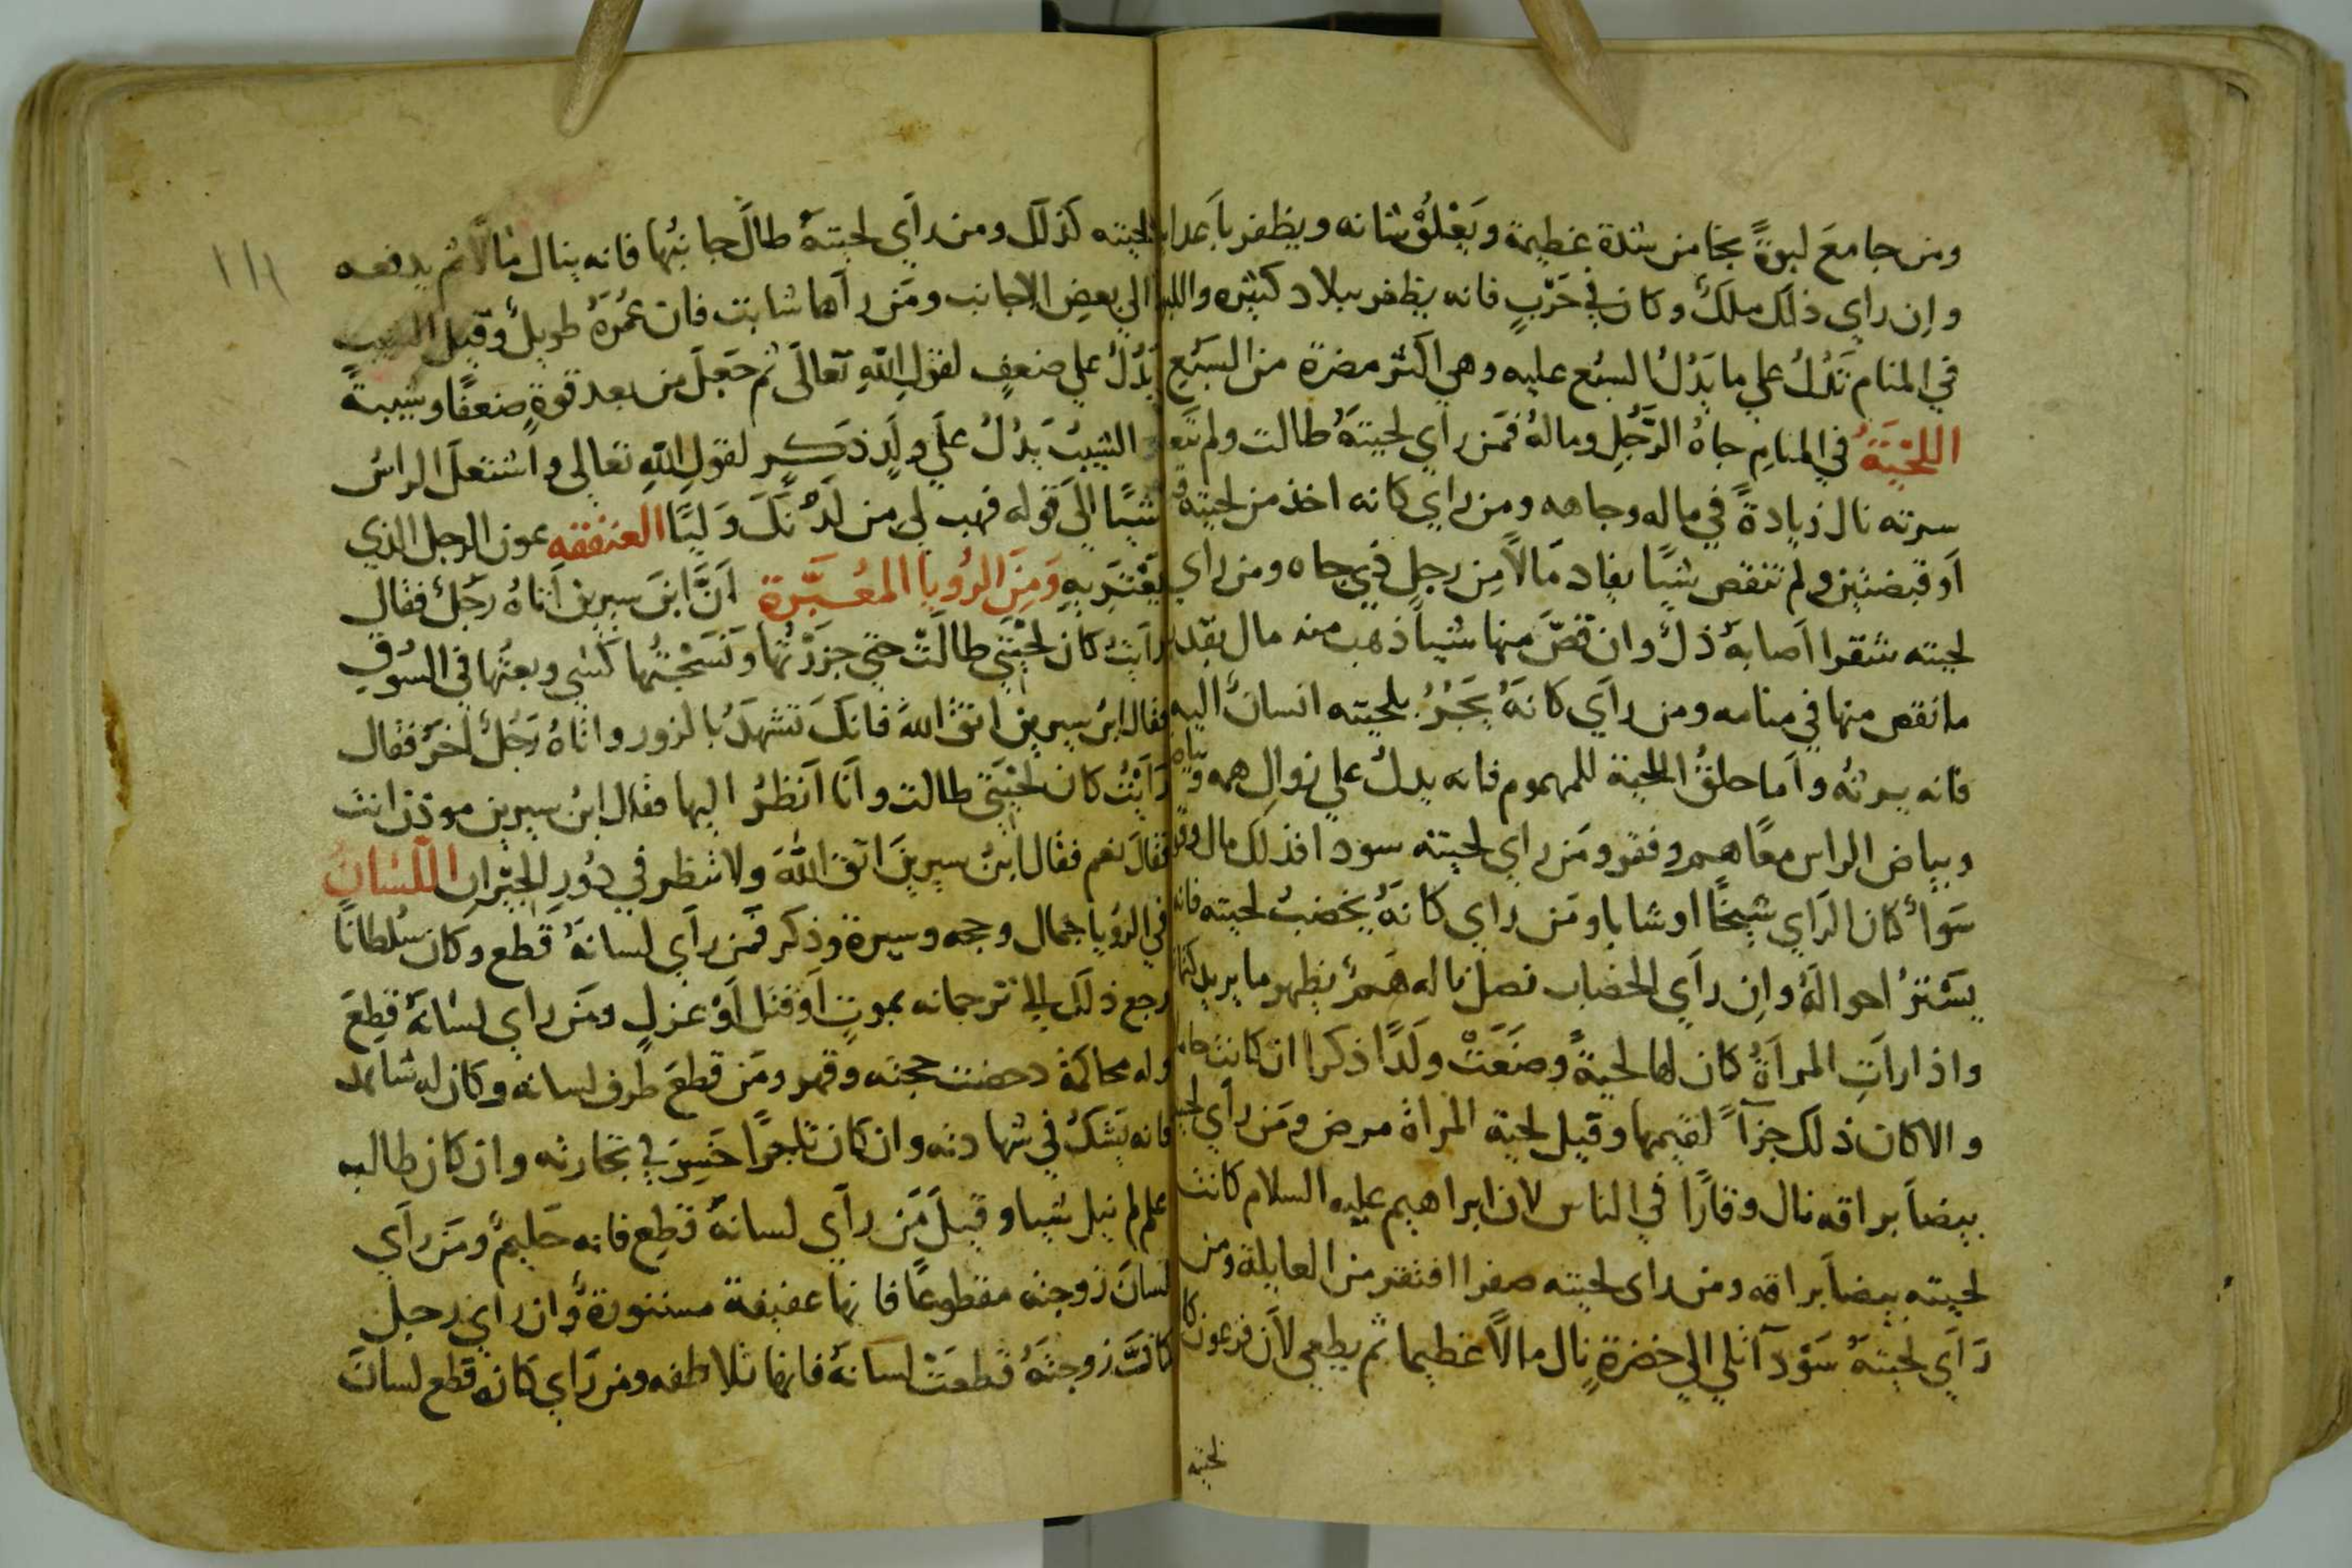 ومن جامعَ لبوةً نجا من شدة عظيمة ويَعْلُوْ شانه ويظفر باَعدا
واِن راي ذلك ملكٌ وكان في حَرْبٍ فانه يظفر ببلاد كثيره واللبو
في المنام تَدُلُ علي ما يَدُلُ السبُع عليه وهي اكثر مضرة من السَبُعِ
اللحْيَةُ في المنامِ جاهُ الرَّجُلِ ومالهُ فمَن راَي لحيتهُ طالت ولم تبع
سرته نال زيادةً في ماله وجاهه ومن راي كانه اخذ من لحيته قبـ
اَو قبضتين ولم تنقص شيًا يفاد مَالاً مِن رجلٍ ذي جاه ومن راي
لحيته شقرا اَصابهُ ذلٌ وان قصَّ منها شياً ذهب منه مال بقد
ما نقص منها في منامه ومن راَي كانهُ يَجَرُ بلحيته انسانٌ اليه
فانه يرثهُ واَما حلقُ اللحية للمهموم فانه يدلُ علي زوالِ همه وبياه
وبياض الراس معًا همٌ وفقر ومَن راي لحيته سودا فذلك مال وقو
سَوآٌ كان الرَاي شيخًا او شابا ومَن راي كانهُ يخضبُ لحيته فانه
يسَترُ احوالهُ واِن راَي الخضاب نصل ناله هَمٌ يظهر ما يريد كتما
واذا راَتِ المراَةُ كان لها لحيةً وضَعَتْ ولَدًا ذكرا ان كانت حاملا
والا كان ذلك جزآً لقيمها وقيل لحية المراة مرض ومَن راَي لحيته
بيضاَ براقه نال وقارًا في الناس لان ابراهيم عليه السلام كانت
لحيته بيضاَ براقه ومن راى لحيته صفرا افتقر من العايلة ومن
رَاَي لحيتهُ سَوْدآ تلي الي خضرةٍ نال مالاً عظيما ثم يطغي لاَن فرعون كا
لحيته
١١١
لحيته كذلك ومن راَي لحيتهُ طالَ جانبُها فانه ينال مالاً ثم يدفعه
الي بعض الاجانب ومَن راَها شابت فان عُمرَهُ طويلٌ وقيل الشيب
يَدُلُ علي ضعفٍ لقولِ اللهِ تعالَى ثم جَعلَ من بعد قوةٍ ضعفًا وشيبةً
والشيبُ يَدُلُ علَي ولَدٍ ذكرٍ لقولِ اللهِ تعالى واشتعلَ الراسُ
شيبًا الَى قوله فهب لي من لَدُنْكَ وَليًا العنفقه عون الرجل الذي
يَعْتَريهِ وَمِنَ الرُويا المعُبَّرة اَنَّ ابنَ سيرين اَتاهُ رَجُلٌ فقال
راَيتُ كان لحْيَتي طالَتْ حتي جزَزْتُها ونَسَجْتُها كسَى وبعتُها في السُوقِ
فقال ابن سيرين اتق اللهَ فانكَ تشهدُ بالزور واتاهُ رَجُلٌ اَخرُ فقال
رَاَيْتُ كان لحْيَتي طالت واَنا اَنظرُ اليها فقال ابن سيرين موذن انت
فقالَ نعم فقال ابنُ سيرينَ اتق اللهَ ولا تنظر في دُورِ الجيْرانِ اللسَانُ
في الرؤيا جمال وجه وسيرة وذكر فمَن راَي لسانهُ قطع وكان سُلطانًا
رجع ذلك الي ترجمانه بموتٍ اَو قتل اَوْ عزلٍ ومَن راي لسانهُ قطِعَ
وله محاكمة دحضت حجته وقهر ومَن قطعَ طرف لسانه وكان له شاهد
فانه يشكُ في شهادته وان كان تاجرًا خَسِر في تجارته وان كان طالب
علم لم ينل شيا وقيلَ مَن راَي لسانهُ قطِع فانه حَليمٌ ومَن راَي
لسانَ زوجته مقطوعًا فانها عفيفة مستورةٌ وان راي رجل
كانَّ زوجتهُ قطعَتْ لسانهُ فانها تلاطفه ومن رَاي كانه قطع لسانَ